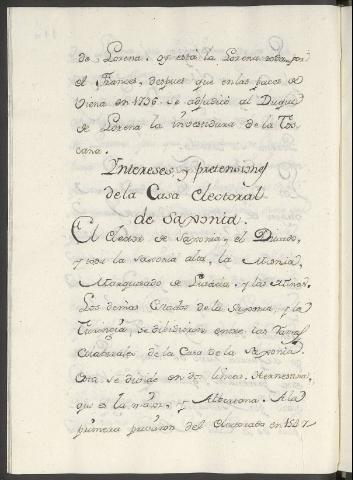 de Lorena. oy está la Lorena por
el Frances, despues que en las paces de
Viena en 1736. se adjudicó al Duque
de Lorena la investidura de la Tos
cana.
Intereses, y pretensiones
de la Casa Electoral
de Saxonia.
El Elector de Saxonia, el Ducado,
y toda la Saxonia alta, la Misnia,
Marquesado de Lusacia, y las
Los demas Estados de la Saxonia, y la
Turingia, se dibidieron entre las Ramas
Colaterales de la Casa de la Saxonia.
Esta se divide en dos lineas. Hernestina,
que es la mayor, y Albertina. A la
primera privaron del Electorado en 1547